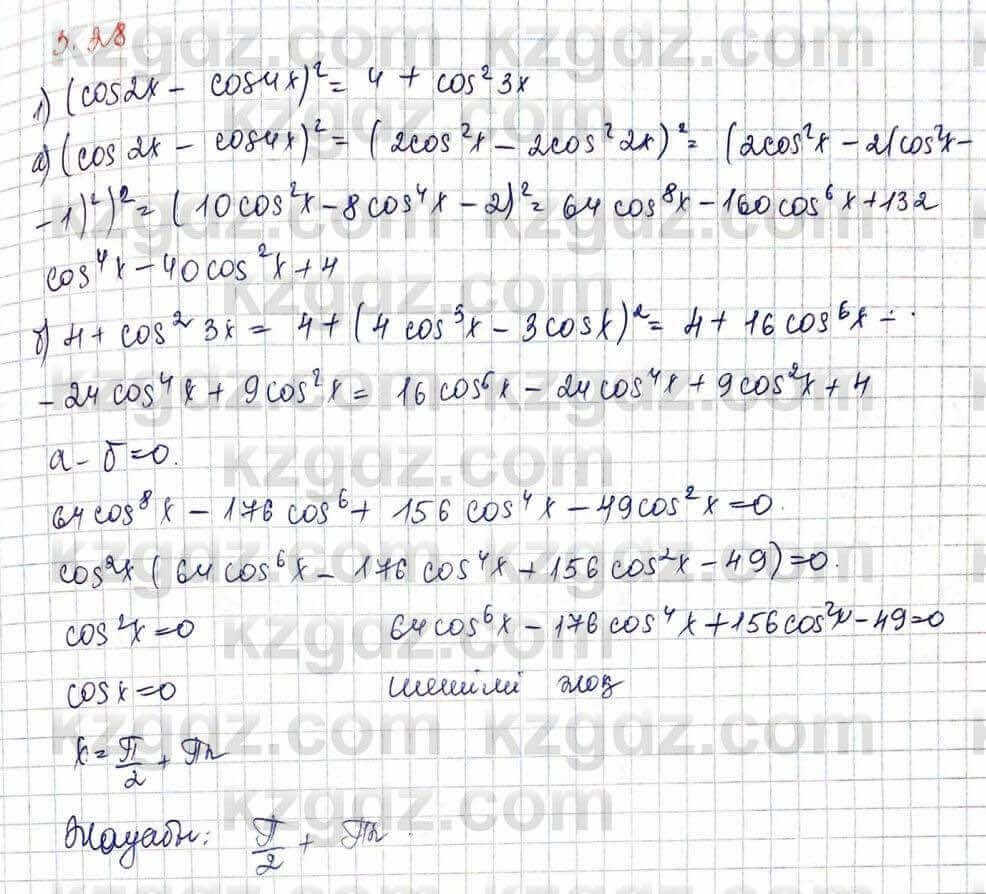 3.28
1) (cos2x - cos4x)² = 4 + cos²3x
а) (cos2x - cos4x)² = (2cos²x - 2cos²2x)² = (2cos²x - 2(cos²x -
- 1)²)² = (10cos²x - 8cos⁴x - 2)² = 64cos⁸x - 160cos⁶x + 132
cos⁴x - 40cos²x + 4
б) 4 + cos²3x = 4 + (4cos³x - 3cosx)² = 4 + 16cos⁶x -
- 24cos⁴x + 9cos²x = 16cos⁶x - 24cos⁴x + 9cos²x + 4
а - б = 0.
64cos⁸x - 176cos⁶ + 156cos⁴x - 49cos²x = 0.
cos²x (64cos⁶x - 176cos⁴x + 156cos²x - 49) = 0.
cos²x = 0 64cos⁶x - 176cos⁴x + 156cos²x - 49 = 0
cosx = 0 шешімі жоқ
x = π/2 + πn
Жауабы: π/2 + πn
kzgdz.com